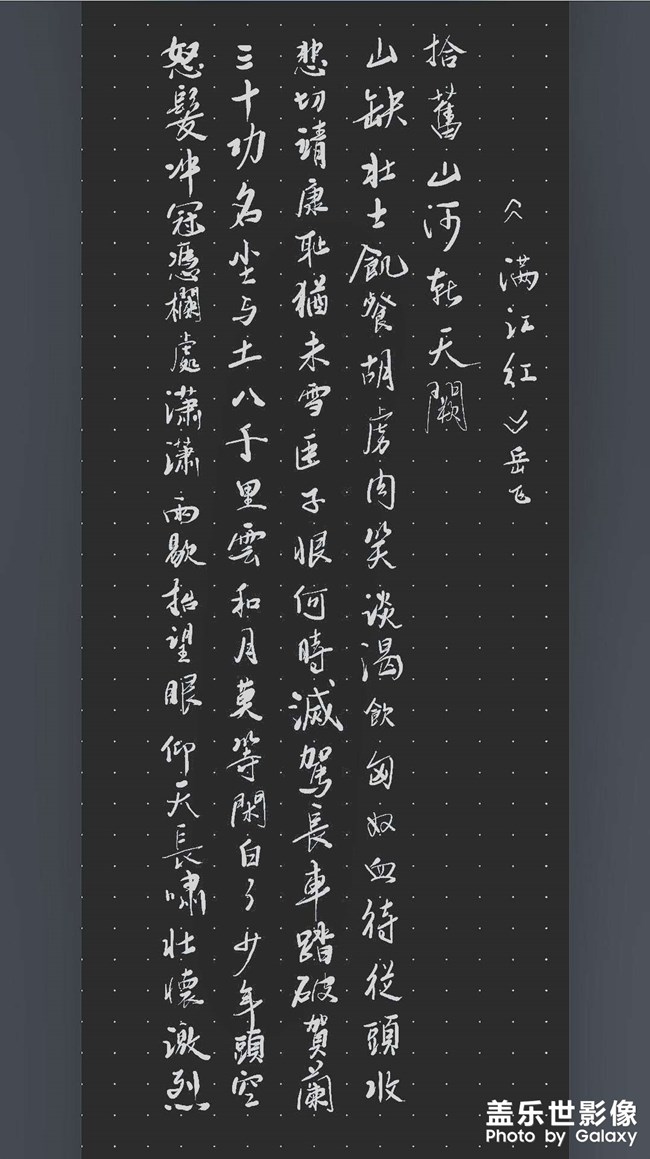 怒髮冲冠憑欄處瀟瀟雨歇抬望眼仰天長嘯壮懷激烈
三十功名尘与土八千里雲和月莫等閑白了少年頭空
悲切靖康耻猶未雪臣子恨何時滅駕長車踏破賀蘭
山缺壮士飢餐胡虜肉笑谈渴飲匈奴血待從頭收
拾舊山河朝天闕
《满江红》岳飞
盖乐世影像
Photo by Galaxy